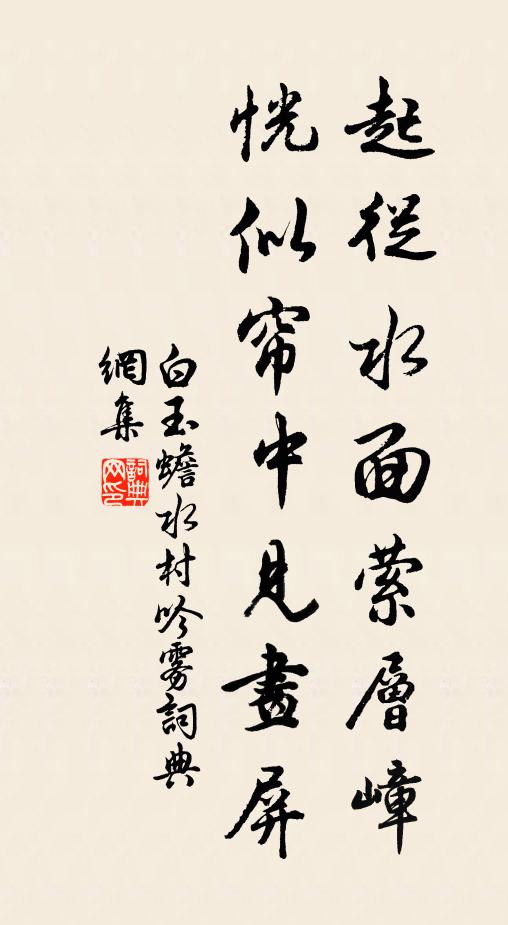 起從水面縈層嶂
恍似帘中見畫屏
白玉蟾水村吟雾詞典
網集
詞典网印